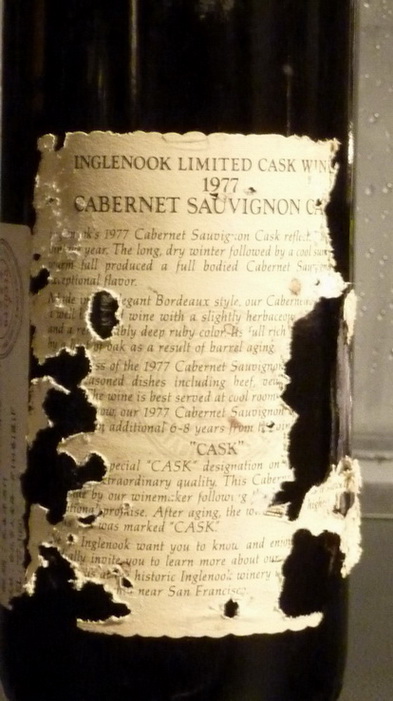 INGLENOOK LIMITED CASK WIN
1977
CABERNET SAUVIGNON CA
1977 Cabernet Sauvignon Cask reflect
year. The long, dry winter followed by a cool su
fall produced a full bodied Cabernet Sau
flavor.
egant Bordeaux style, our Caberne
wine with a slightly herbaceou
and a re bly deep ruby color. Its full rich
of oak as a result of barrel aging.
ss of the 1977 Cabernet Sauvignon
asoned dishes including beef, ven
he wine is best served at cool room
ow, our 1977 Cabernet Sauvignon
n additional 6-8 years from
"CASK"
pecial "CASK" designation on
xtraordinary quality. This Caber
by our winemaker following
promise. After aging, the
was marked "CASK."
Inglenook want you to know and enjo
ally invite you to learn more about our
historic Inglenook winery
near San Francisc